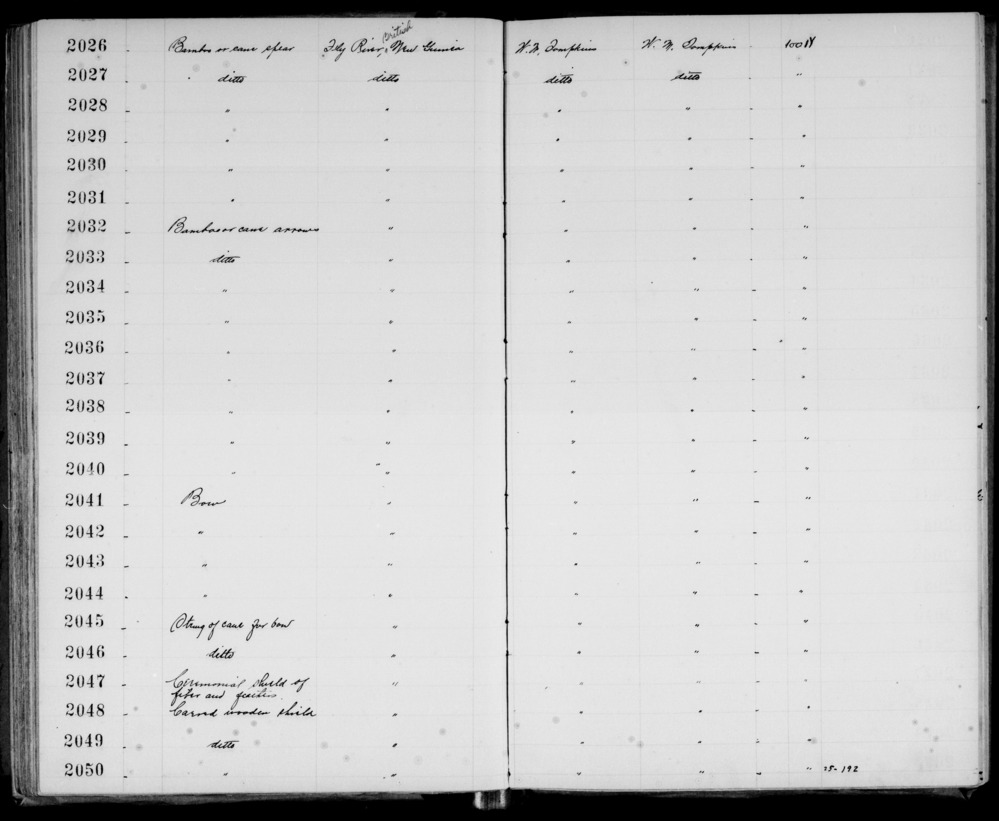 2026 - Bamboo or cane spear Fly River, British New Guinea W. W. Tompkins W. W. Tompkins - 10018
2027 - ditto ditto ditto ditto - "
2028 - " " " " - "
2029 - " " " " - "
2030 - " " " " - "
2031 - " " " " - "
2032 - Bamboo or cane arrows " " " - "
2033 - ditto " " " - "
2034 - " " " " - "
2035 - " " " " - "
2036 - " " " " - "
2037 - " " " " - "
2038 - " " " " - "
2039 - " " " " - "
2040 - " " " " - "
2041 - Bow " " " - "
2042 - " " " " - "
2043 - " " " " - "
2044 - " " " " - "
2045 - String of cane for bow " " " - "
2046 - ditto " " " - "
2047 - Ceremonial shield of " " " - "
fiber and feathers
2048 - Carved wooden shield " " " - "
2049 - ditto " " " - "
2050 - " " " " - " 25-192